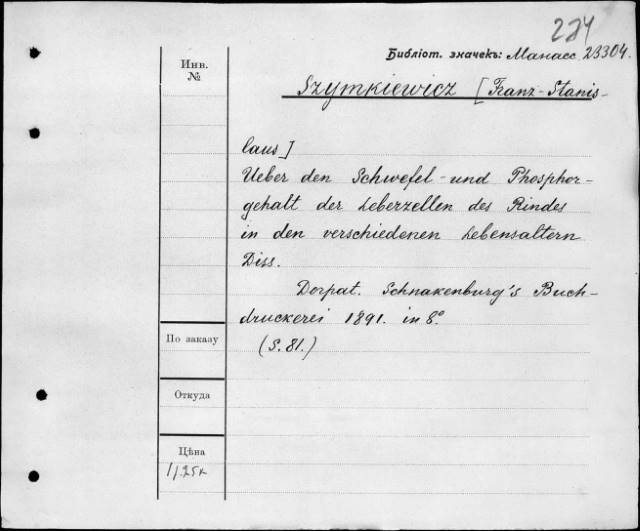 224
Библіот. значекъ: Манасс. 23304.
Инв.
№
Szymkiewicz [Franz-Stanis-
laus]
Ueber den Schwefel- und Phosphor-
gehalt der Leberzellen des Rindes
in den verschiedenen Lebensaltern
Diss.
Dorpat. Schnakenburg's Buch-
druckerei 1891. in 8°
(S. 81.)
По заказу
Откуда
Цѣна
1/25к